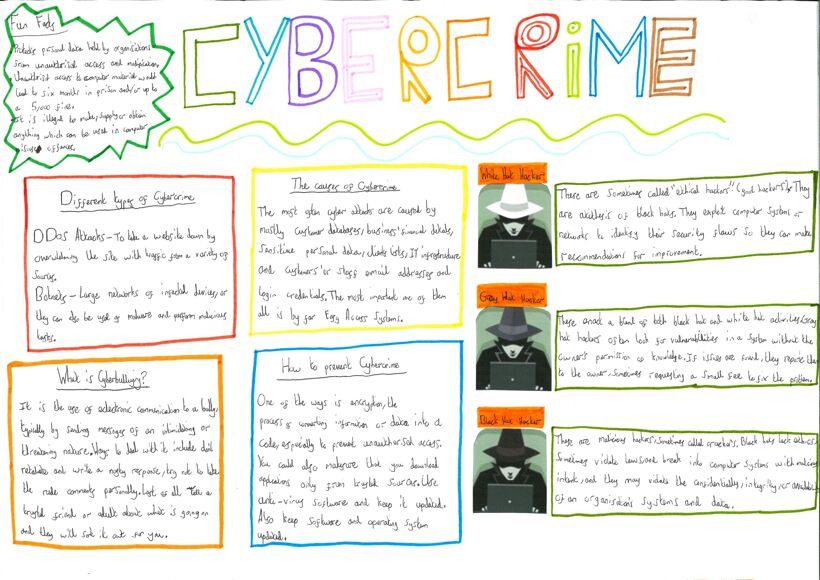 CYBERCRIME
Fun Facts
Protects personal data held by organisations
from unauthorised access and modification.
Unauthorised access to computer material would
lead to six months in prison and/or up to
a 5,000 fine.
It is illegal to make, supply or obtain
anything which can be used in computer
misuse offences.
Different types of Cybercrime
DDoS Attacks - To take a website down by
overwhelming the site with traffic from a variety of
sources.
Botnets - Large networks of infected devices, or
they can also be used of malware and perform malicious
tasks.
The causes of Cybercrime
The most often cyber attacks are caused by
mostly customer databases, business' financial details,
Sensitive personal data, clients lists, IT infrastructure
and customers or staff email addresses and
Login credentials. The most important one of them
all is by far Easy Access Systems.
What is Cyberbullying?
It is the use of electronic communication to a bully,
typically by sending messages of an intimidating or
threatening nature. Ways to deal with it include don't
retaliate and write a nasty response, try not to take
the rude comments personally. Last of all Tell a
trusted friend or adult about what is going on
and they will sort it out for you.
How to prevent Cybercrime
One of the ways is encryption, the
process of converting information or data into a
Code, especially to prevent unauthorised access.
You could also makesure that you download
applications only from trusted Sources. Use
anti-virus software and keep it updated.
Also keep software and operating system
updated.
White Hat Hacker
These are sometimes called "ethical hackers" (good hackers). They
are antithesis of black hats. They exploit computer systems or
networks to identify their security flaws so they can make
recommendations for improvement.
Gray Hat Hacker
These are a blend of both black hat and white hat activities. Gray
hat hackers often look for vulnerabilities in a system without the
owner's permission or knowledge. If issues are found, they report them
to the owner, sometimes requesting a small fee to fix the problem.
Black Hat Hacker
These are malicious hackers, sometimes called crackers. Black hats lack ethics,
Sometimes violate laws and break into computer systems with malicious
intent, and they may violate the confidentiality, integrity, or availability
of an organisation's systems and data.